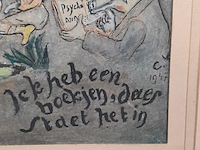 Psycho
Ick heb een
boekjen, daer
staet het in